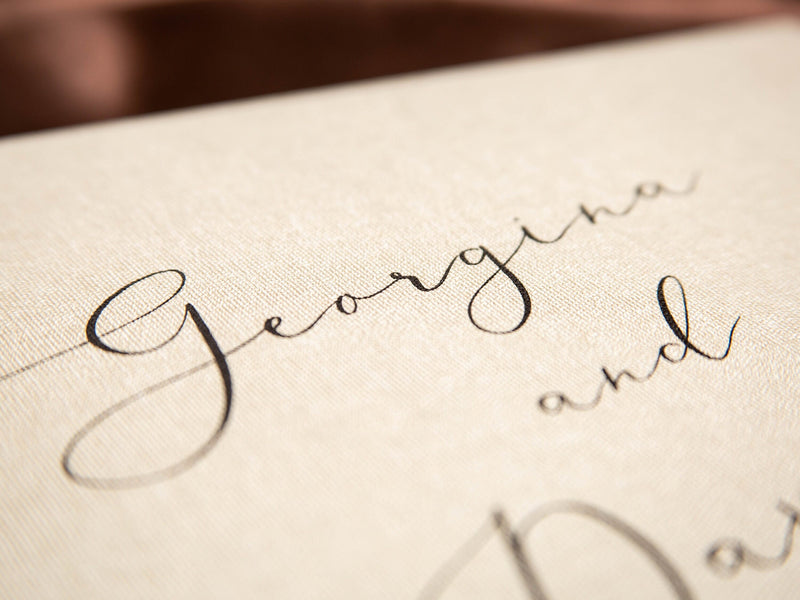 Georgina
and